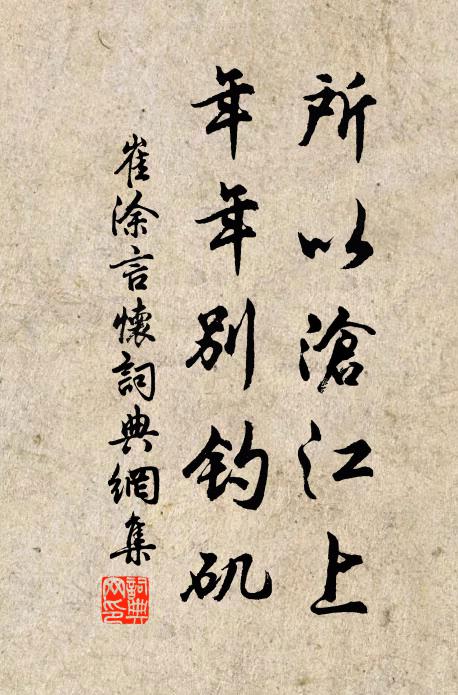 所以滄江上
年年別釣矶
崔涂言懷詞典網集
詞典网印